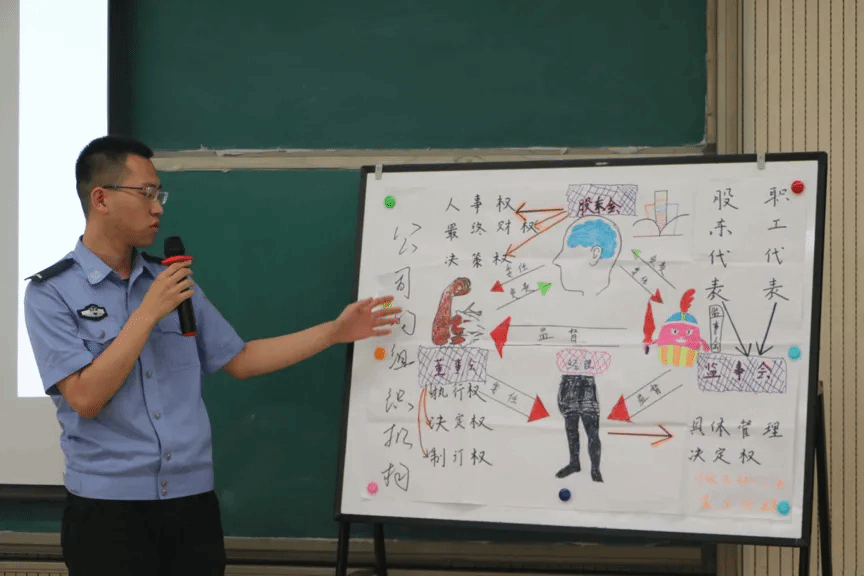 公司的组织机构
人事权
最终财权
决策权
股东会
股东代表
职工代表
委任
监督
董事会
经理
监事会
执行权
决定权
制订权
委任
监督
具体管理
决定权